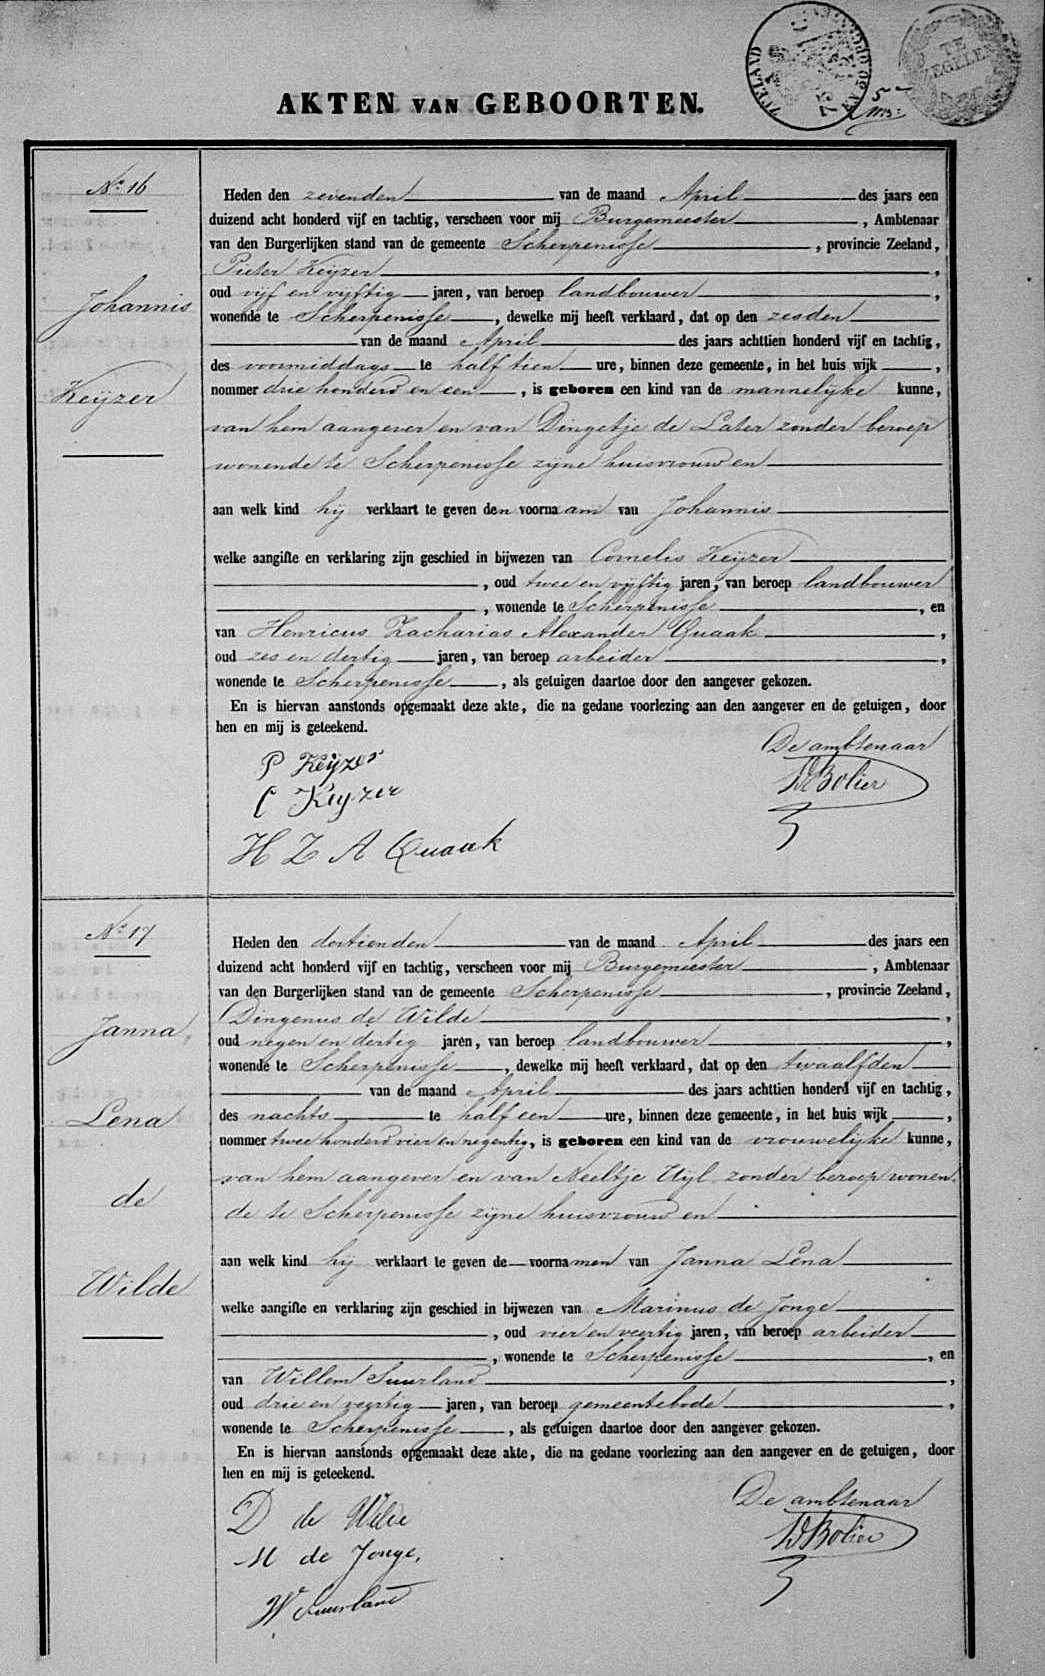 AKTEN VAN GEBOORTEN.
ZEELAND
TE ZEGELEN
No 16
Johannis
Keijzer
Heden den zevenden van de maand April des jaars een
duizend acht honderd vijf en tachtig, verscheen voor mij Burgemeester, Ambtenaar
van den Burgerlijken stand van de gemeente Scherpenisse, provincie Zeeland,
Pieter Keijzer,
oud vijf en vijftig jaren, van beroep landbouwer,
wonende te Scherpenisse, dewelke mij heeft verklaard, dat op den zesden
van de maand April des jaars achttien honderd vijf en tachtig,
des voormiddags te half tien ure, binnen deze gemeente, in het huis wijk ,
nommer drie honderd en een, is geboren een kind van de mannelijke kunne,
van hem aangever en van Dingetje de Later zonder beroep
wonende te Scherpenisse zijne huisvrouw en
aan welk kind hij verklaart te geven den voornaam van Johannis
welke aangifte en verklaring zijn geschied in bijwezen van Cornelis Keijzer
, oud twee en vijftig jaren, van beroep landbouwer
, wonende te Scherpenisse, en
van Henricus Zacharias Alexander Quaak,
oud zes en dertig jaren, van beroep arbeider,
wonende te Scherpenisse, als getuigen daartoe door den aangever gekozen.
En is hiervan aanstonds opgemaakt deze akte, die na gedane voorlezing aan den aangever en de getuigen, door
hen en mij is geteekend.
De ambtenaar
P Keijzer
Bolier
C Keyzer
H Z A Quaak
No 17
Janna
Lena
de
Wilde
Heden den dertienden van de maand April des jaars een
duizend acht honderd vijf en tachtig, verscheen voor mij Burgemeester, Ambtenaar
van den Burgerlijken stand van de gemeente Scherpenisse, provincie Zeeland,
Dingenus de Wilde,
oud negen en dertig jaren, van beroep landbouwer,
wonende te Scherpenisse, dewelke mij heeft verklaard, dat op den twaalfden
van de maand April des jaars achttien honderd vijf en tachtig,
des nachts te half een ure, binnen deze gemeente, in het huis wijk ,
nommer twee honderd vier en negentig, is geboren een kind van de vrouwelijke kunne,
van hem aangever en van Neeltje Uijl zonder beroep wonen-
de te Scherpenisse zijne huisvrouw en
aan welk kind hij verklaart te geven de voornamen van Janna Lena
welke aangifte en verklaring zijn geschied in bijwezen van Marinus de Jonge
, oud vier en veertig jaren, van beroep arbeider
, wonende te Scherpenisse, en
van Willem Suurland,
oud drie en veertig jaren, van beroep gemeentebode,
wonende te Scherpenisse, als getuigen daartoe door den aangever gekozen.
En is hiervan aanstonds opgemaakt deze akte, die na gedane voorlezing aan den aangever en de getuigen, door
hen en mij is geteekend.
De ambtenaar
D de Wilde
Bolier
M de Jonge,
W Suurland